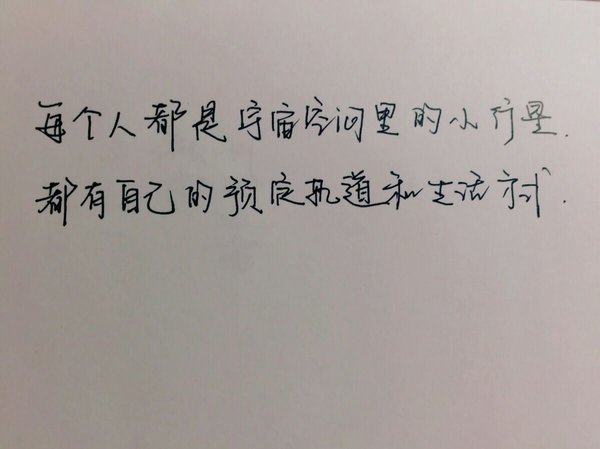 每个人都是宇宙空间里的小行星.
都有自己的预定轨道和生活方式.